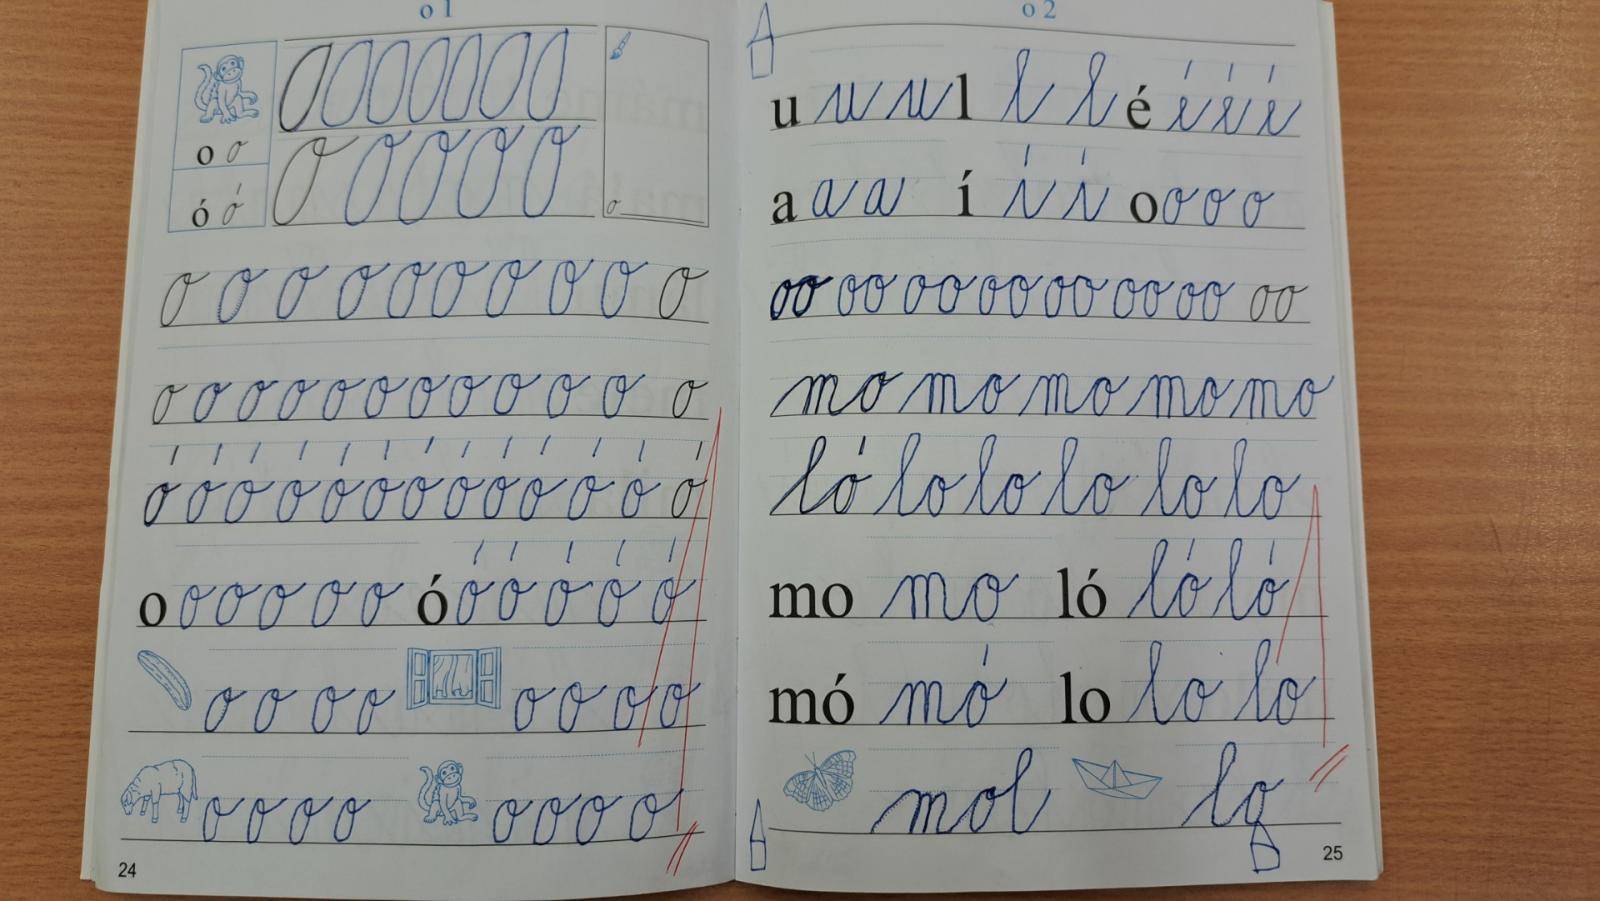 o 1
O O O O O O O
o o
O O O O O
ó ó
o
o o o o o o o o o
o o o o o o o o o o o o
ó ó ó ó ó ó ó ó ó ó ó ó ó
o o o o o o ó ó ó ó ó ó
o o o o o o o o
o o o o o o o o
24
o 2
u u u l l l é é é é
a a a í í í o o o o
oo oo oo oo oo oo oo oo
mo mo mo mo mo
ló lo lo lo lo lo
mo mo ló ló ló
mó mó lo lo lo
mol lo
25